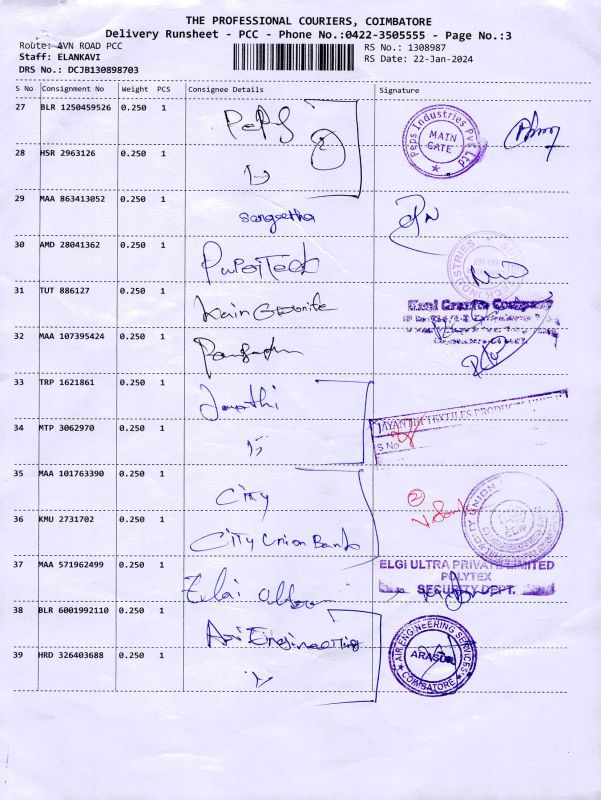 THE PROFESSIONAL COURIERS, COIMBATORE
Delivery Runsheet - PCC - Phone No.:0422-3505555 - Page No.:3
Route: AVN ROAD PCC
RS No.: 1308987
Staff: ELANKAVI
RS Date: 22-Jan-2024
DRS No.: DCJB130898703
S No Consignment No Weight PCS Consignee Details Signature
27 BLR 1250459526 0.250 1 PePS
Peps Industries Pvt Ltd
MAIN GATE
28 HSR 2963126 0.250 1
29 MAA 863413052 0.250 1 Sangeetha
30 AMD 28041362 0.250 1
31 TUT 886127 0.250 1
32 MAA 107395424 0.250 1
33 TRP 1621861 0.250 1 Jayanthi
JAYANTHI TEXTILES PRODUCTS
S No
34 MTP 3062970 0.250 1
35 MAA 101763390 0.250 1 City
36 KMU 2731702 0.250 1 City Union Bank
37 MAA 571962499 0.250 1 Elgi Ultra
ELGI ULTRA PRIVATE LIMITED
POLYTEX
SECURITY DEPT.
38 BLR 6001992110 0.250 1 Air Engineering
AIR ENGINEERING SERVICES
COIMBATORE
39 HRD 326403688 0.250 1